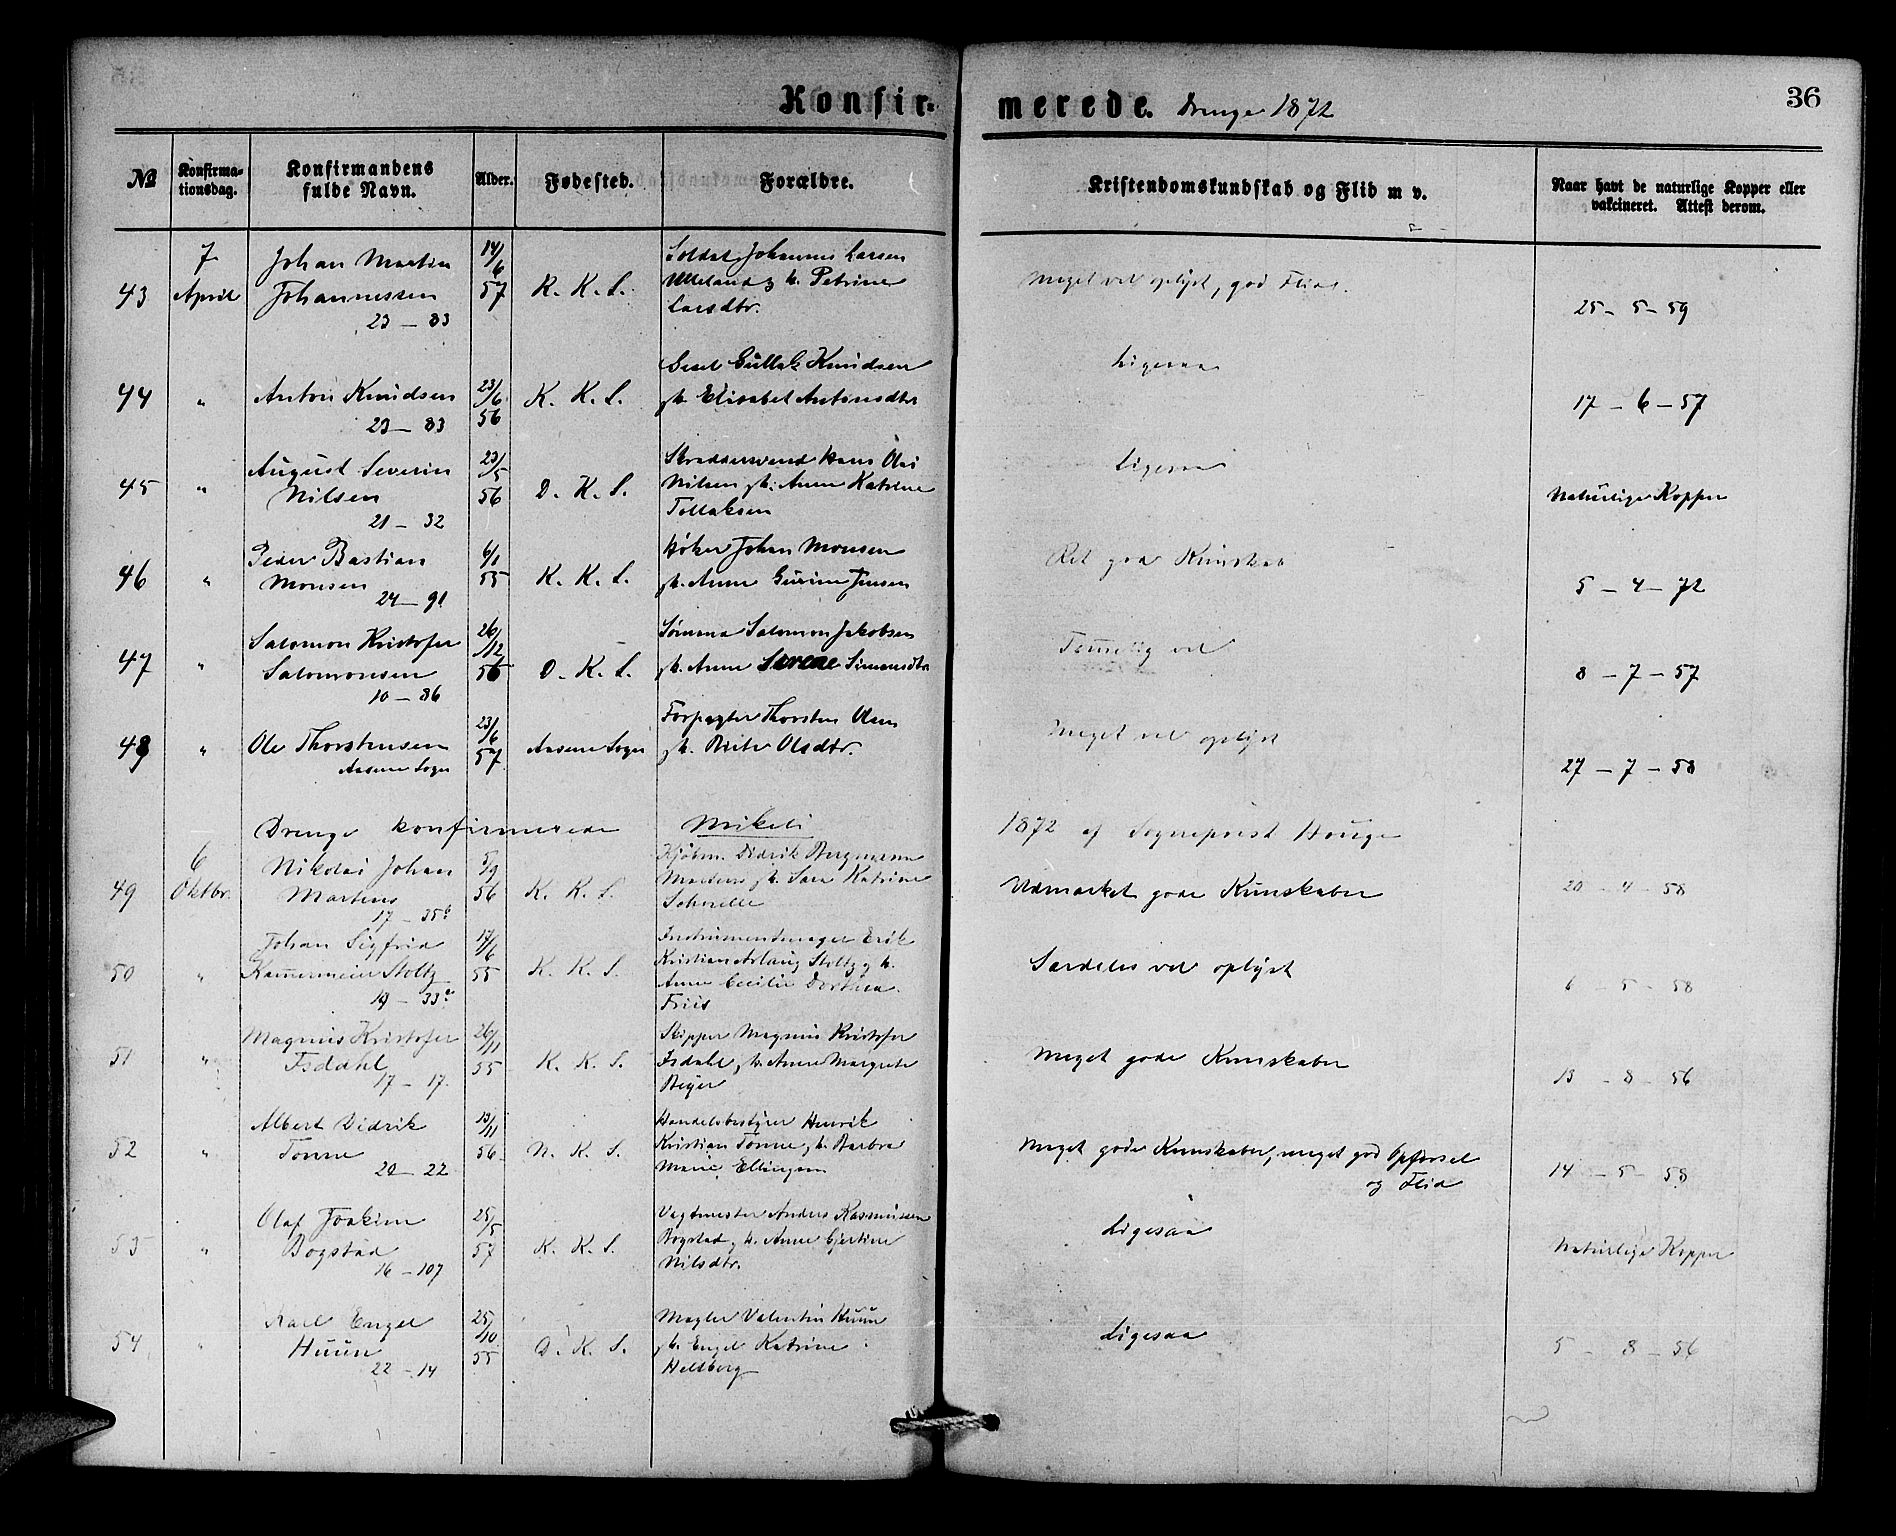 Konfir-
merede. Drenge 1872
36
No
Konfirma-
tionsdag.
Konfirmandens
fulde Navn.
Alder.
Fødested.
Forældre.
Kristendomskundskab og Flid m v.
Naar havt de naturlige Kopper eller
vakcineret. Attest derom.
43
7
April
Johan Martin
Johannessen
23 - 83
14/6
57
K. K. S.
Soldat Johannes Larsen
Ulleland g h. Petrine
Larsdtr.
Meget vel oplyst, god Flid.
25 - 5 - 59
44
"
Anton Knudsen
23 - 83
23/6
56
K. K. S.
Gullak Knudsen
g h. Elisabet Antonsdtr
Ligesaa
17 - 6 - 57
45
"
August Severin
Nilsen
21 - 32
23/5
56
D. K. S.
Skreddersvend Hans Olai
Nilsen g h. Anne Katrine
Tollaksen
Ligesaa
Naturlige Kopper
46
"
Peder Bastian
Monsen
24 - 91
6/1
55
K. K. S.
Høker Johan Monsen
g h. Anne Gurine Jensen
Ret god Kunskab
5 - 4 - 72
47
"
Salomon Kristofer
Salomonsen
10 - 86
26/12
56
D. K. S.
Sømand Salomon Jakobsen
g h. Anne Serene Simonsdtr
Temmelig vel
8 - 7 - 57
48
"
Ole Thorstensen
Aasene Sogn
23/6
57
Aasene Sogn
Forpagter Thorsten Olsen
g h. Brite Olsdtr.
Meget vel oplyst
27 - 7 - 58
Drenge konfirmerede Mikeli
1872 af Sogneprest Houge
49
6
Oktbr.
Nikolai Johan
Martens
17 - 35b
5/9
56
K. K. S.
Kjøbm. Didrik Bergmann
Martens g h. Sara Katrine
Schnelle
Udmærket gode Kunskaber
20 - 4 - 58
50
"
Johan Sigfrid
Kamermeier Stoltz
19 - 33a
17/6
55
K. K. S.
Instrumentmager Erik
Kristian Aslaug Stoltz g h.
Anne Cecilie Dorthea
Friis
Særdeles vel oplyst
6 - 5 - 58
51
"
Magnus Kristofer
Isdahl
17 - 17
26/11
55
K. K. S.
Skipper Magnus Kristofer
Isdahl g h. Anne Margrete
Beyer
Meget gode Kunskaber
13 - 8 - 56
52
"
Albert Didrik
Tonne
20 - 22
13/11
56
N. K. S.
Handelsbestyrer Henrik
Kristian Tonne g h. Barbra
Marie Ellingsen
Meget gode Kunskaber, meget god Opførsel
og Flid
14 - 5 - 58
53
"
Olaf Joakim
Bogstad
16 - 107
25/5
57
K. K. S.
Vagtmester Anders Rasmussen
Bogstad g h. Anne Gjertine
Nilsdtr.
Ligesaa
Naturlige Kopper
54
"
Karl Engel
Huun
22 - 14
25/10
55
D. K. S.
Mægler Valentin Huun
g h. Engel Katrine
Heltberg
Ligesaa
5 - 8 - 56